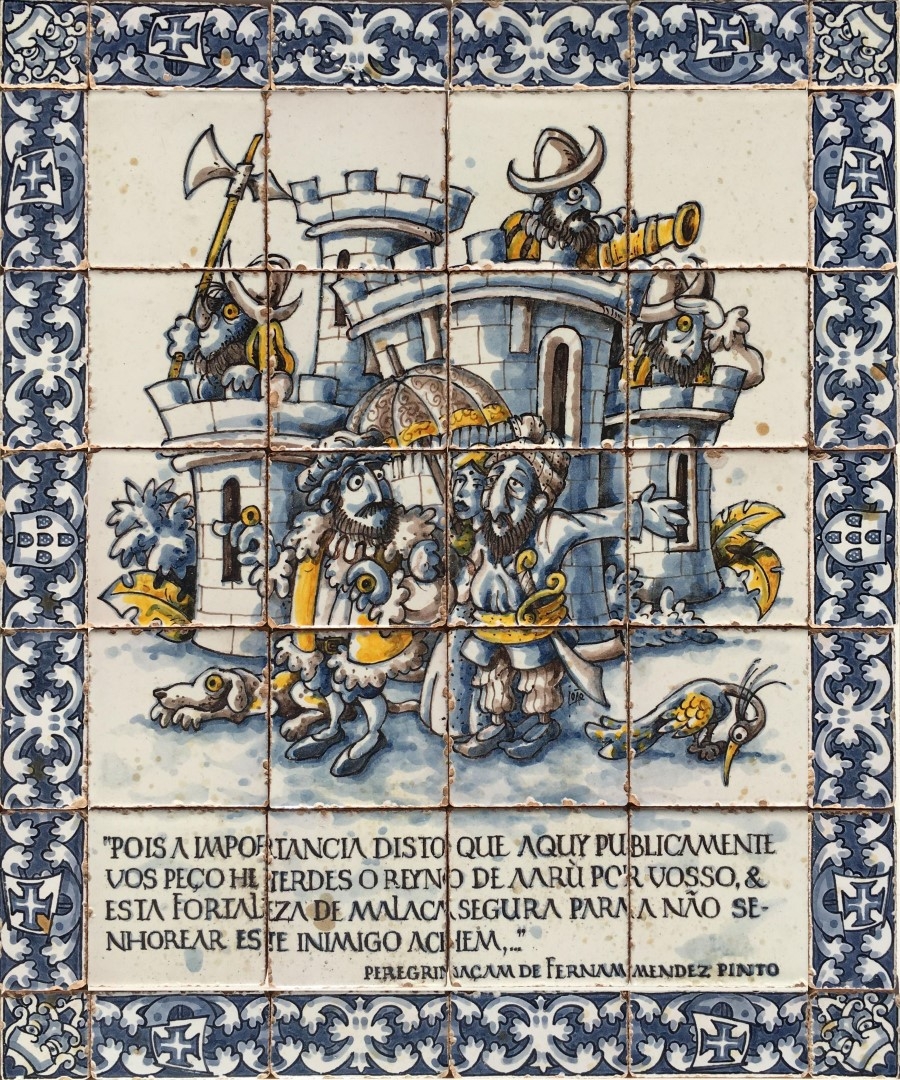 "POIS A IMPORTANCIA DISTO QUE AQUY PUBLICAMENTE
VOS PEÇO HE TERDES O REYNO DE AARÙ POR VOSSO, &
ESTA FORTALEZA DE MALACA SEGURA PARA A NÃO SE-
NHOREAR ESTE INIMIGO ACHEM,..."
PEREGRINAÇAM DE FERNAM MENDEZ PINTO